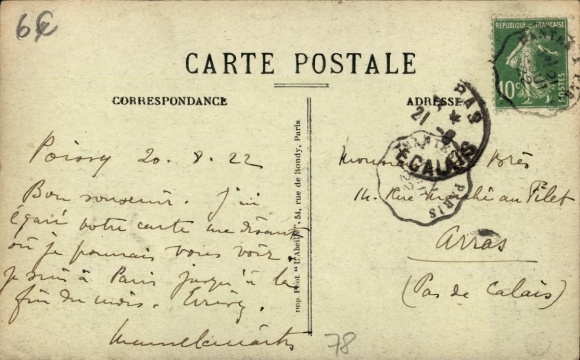 6€
CARTE POSTALE
CORRESPONDANCE
ADRESSE
REPUBLIQUE FRANÇAISE
10c
POSTES
21
E CALAIS
PARIS
Poissy 20. 8. 22
Bon souvenir. J'ai
égaré votre carte me disant
où je pourrais vous voir.
je suis à Paris jusqu'à la
fin du mois.
14. Rue Marché au Filet
Arras
(Pas de Calais)
Imp. Phot "L'Abeille", 54, rue de Bondy, Paris
78